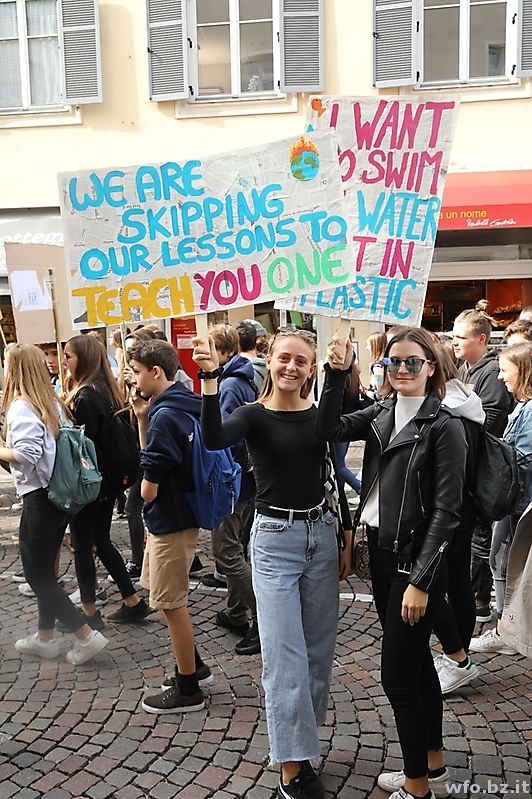 WE ARE
SKIPPING
OUR LESSONS TO
TEACH YOU ONE
I WANT
TO SWIM
WATER
T IN
PLASTIC
a un nome
wfo.bz.it